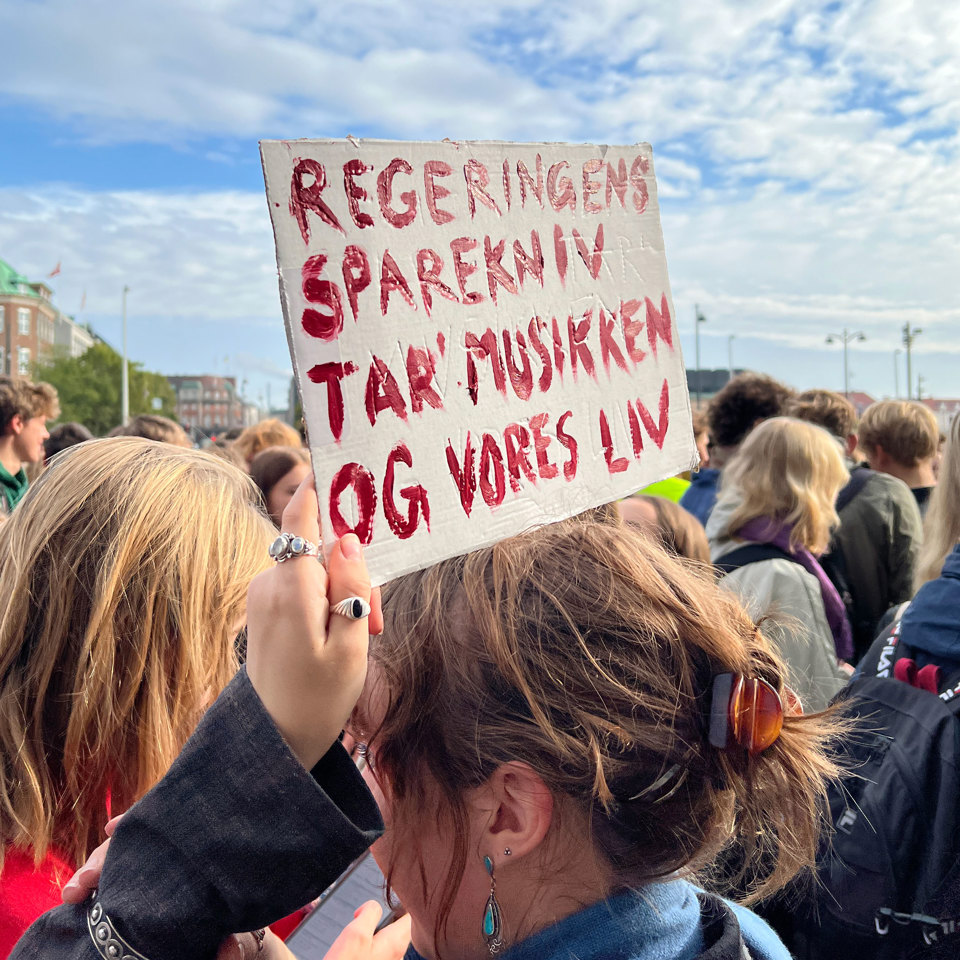 REGERINGENS
SPAREKNIV
TAR' MUSIKKEN
OG VORES LIV
FILA